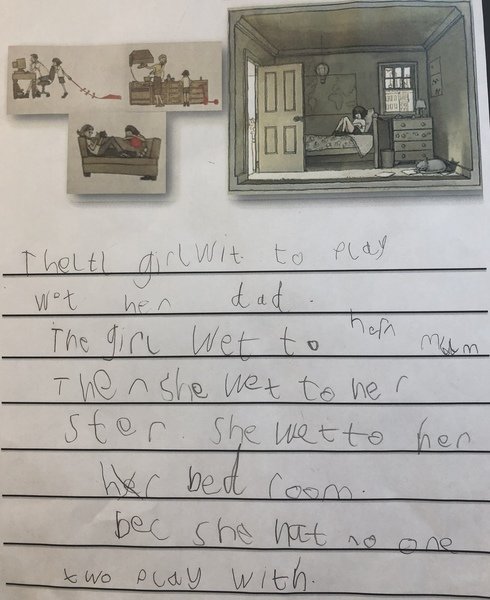 The ltl girl wit to play
wot her dad.
The girl wet to her mum
Then she wet to her
ster. she wet to her
her bed room.
bec she hat no one
two play with.